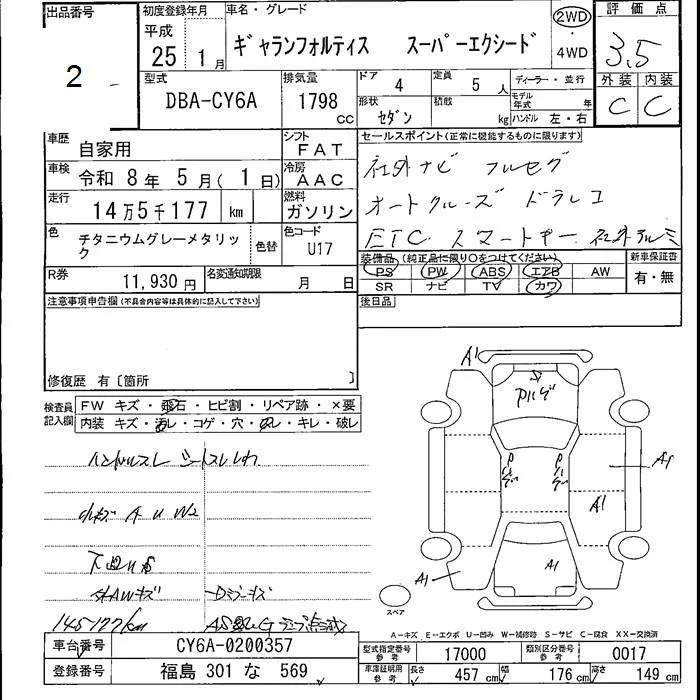 出品番号
2
初度登録年月
平成
25年 1月
車名・グレード
ギャランフォルティス スーパーエクシード
2WD
・
4WD
評価点
3.5
外装 内装
C C
型式
DBA-CY6A
排気量
1798
CC
ドア 4
定員 5人
形状 セダン
積載 kg
ディーラー・並行
モデル年式 年
ハンドル 左・右
車歴 自家用
シフト FAT
車検 令和 8年 5月( 1日)
冷房 AAC
走行 14万5千177 km
燃料 ガソリン
色 チタニウムグレーメタリック
色替
色コード U17
R券 11,930円
名変通知期限 月 日
セールスポイント(正常に機能するものに限ります)
社外ナビ フルセグ
オートクルーズ ドラレコ
ETC スマートキー 社外アルミ
装備品(純正品に限り○をつけてください)
PS PW ABS エアB AW
SR ナビ TV カワ
新車保証書
有・無
後日品
注意事項申告欄(不具合内容等は具体的に記入して下さい)
修復歴 有〔箇所 〕
検査員記入欄
FW キズ・飛石・ヒビ割・リペア跡・×要
内装 キズ・汚レ・コゲ・穴・スレ・キレ・破レ
ハンドルスレ シートスレしわ
小キズ A U W2
下回りS
社外AWキズ
ドアミラーキズ
145177km
A1
A1
A1
A1
A1
スペア
A-キズ E-エクボ U-凹み W-補修跡 S-サビ C-腐食 XX-交換済
車台番号 CY6A-0200357
登録番号 福島 301 な 569
型式指定番号 参考 17000
類別区分番号 参考 0017
車庫証明用 参考 長さ 457 cm 幅 176 cm 高さ 149 cm